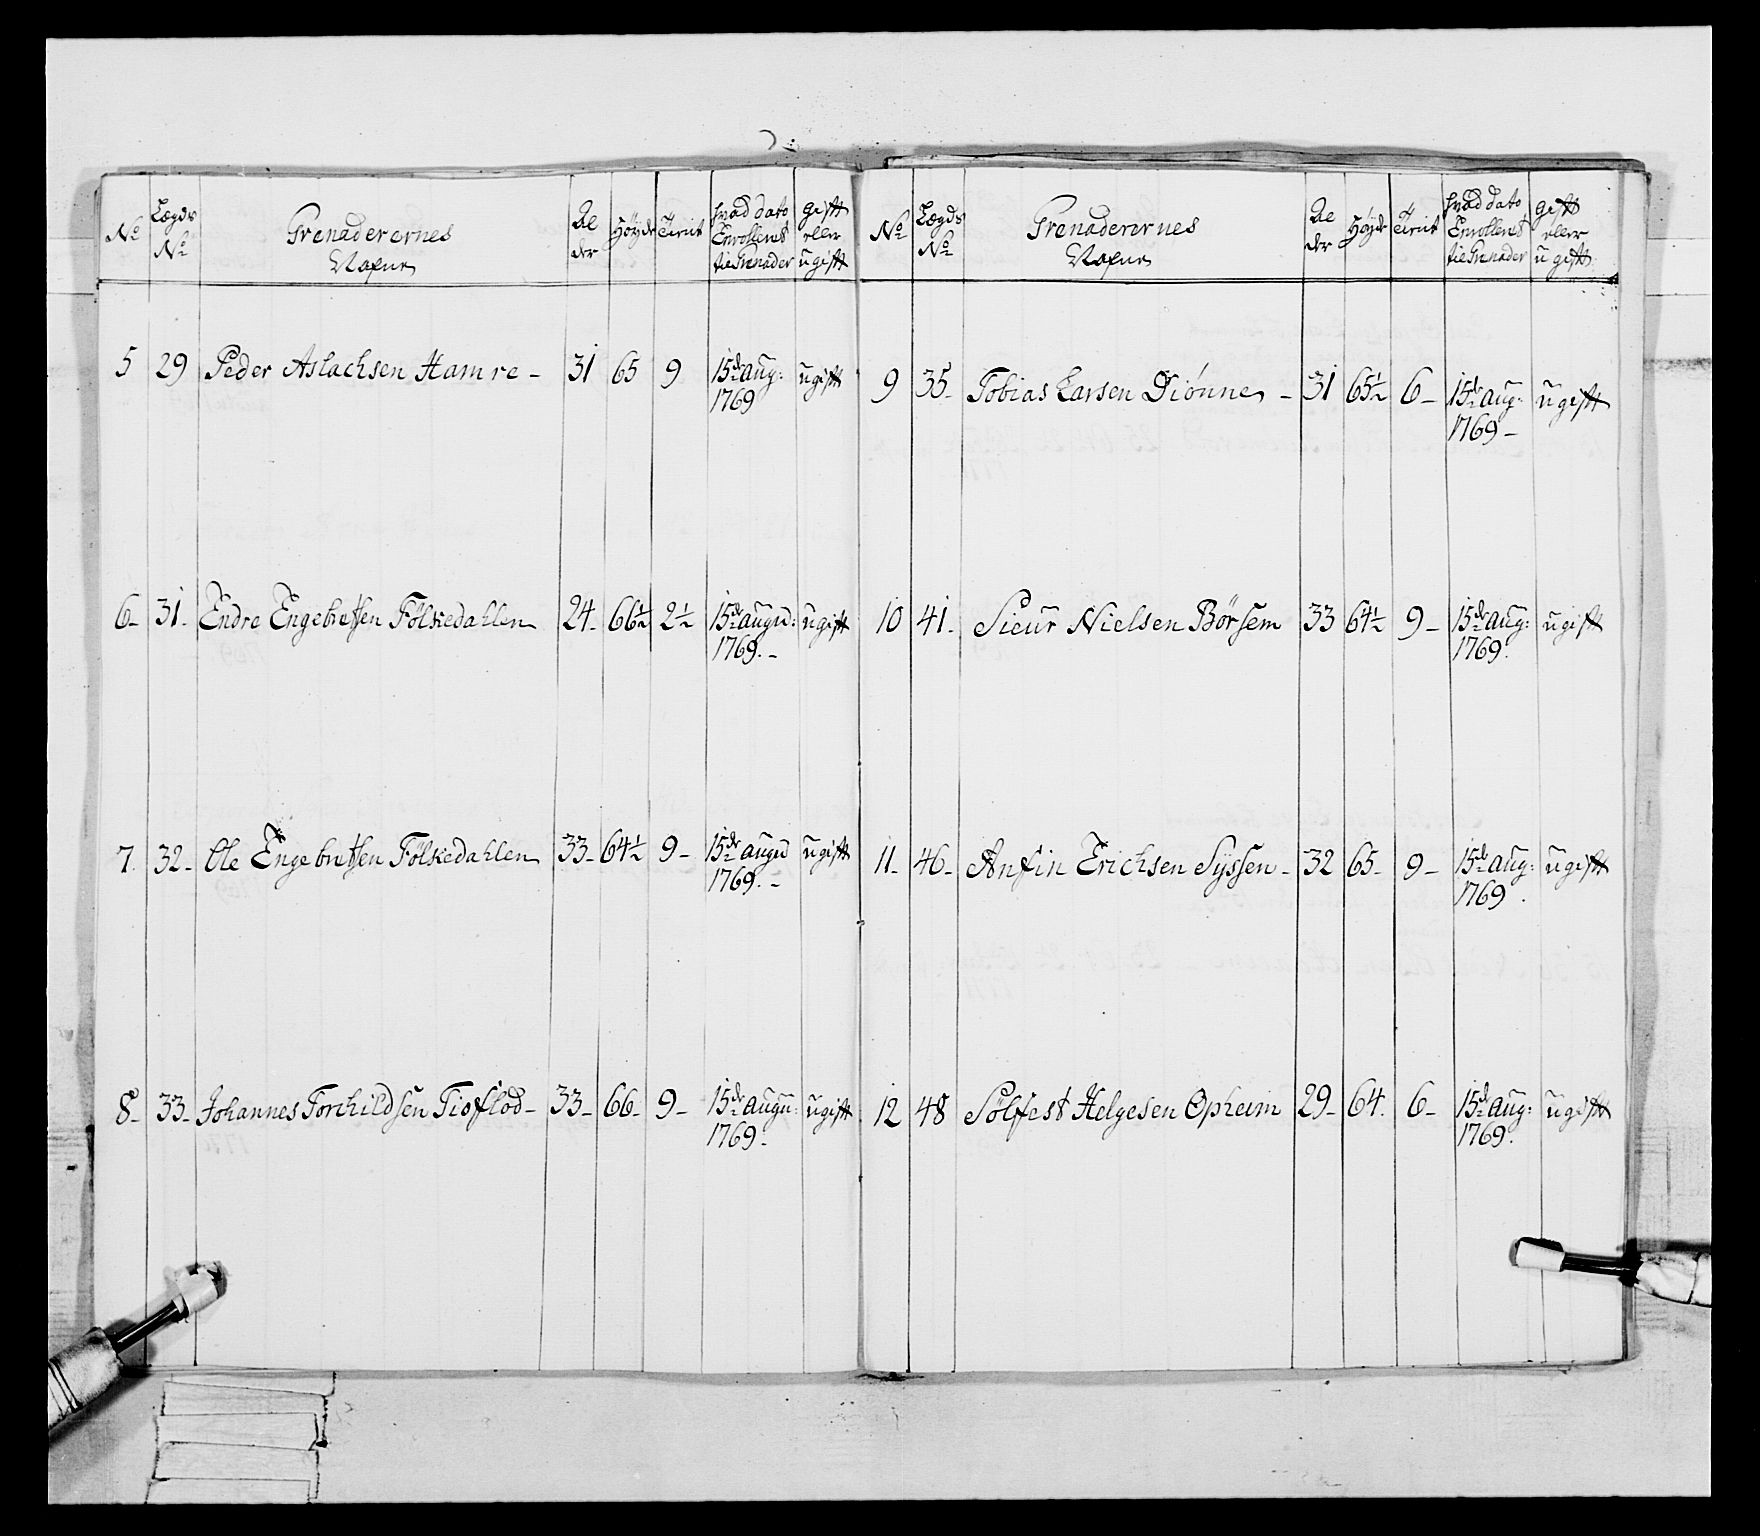 No Lægds No Grenaderernes Nafne Alder Høyde Tient hvad dato Enrolleret til Grenader gift eller ugift
5 29 Peder Aslachsen Hamre - 31 65 9 15de aug: 1769 ugift
6- 31- Endre Engebretsen Fölkedahlen 24- 66½ 2½ 15de augu: 1769.- ugift
7. 32- Ole Engebretsen Fölkedahlen 33- 64½ 9- 15de augu 1769.- ugift
8- 33- Johannes Torchildsen Tioflod- 33- 66- 9- 15de augu: 1769.- ugift
No Lægds No Grenaderernes Nafne Alder Høyde Tient hvad dato Enrolleret til Grenader gift eller ugift
9 35- Tobias Larsen Diönne - 31 65½ 6- 15de aug: 1769- ugift
10 41- Sieur Nielsen Börsem 33 64½ 9- 15de aug: 1769. ugift
11- 46- Anfin Erichsen Syssen- 32 65- 9- 15de aug: 1769. ugift
12 48 Sölfest Helgesen Opheim 29- 64. 6- 15de aug: 1769. ugift